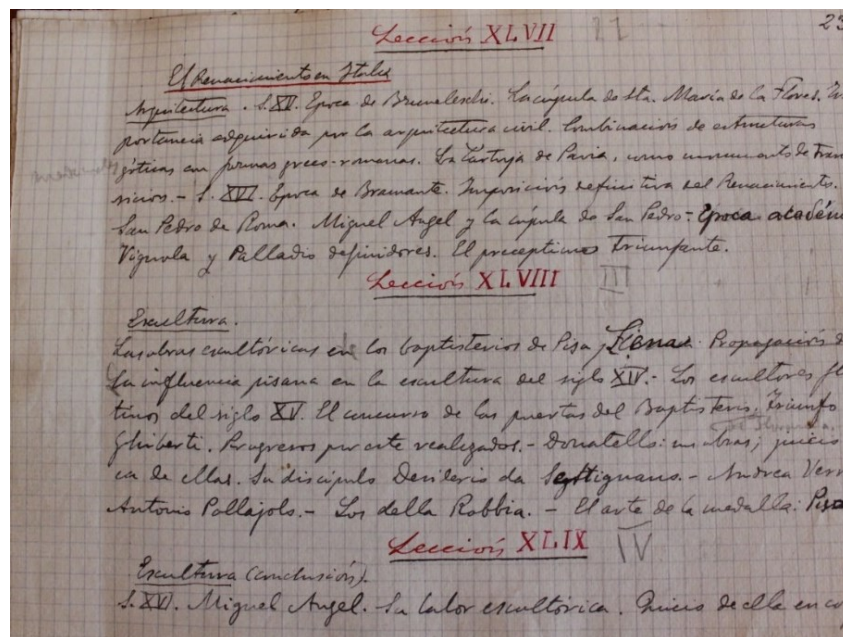 Lección XLVII II 23
El Renacimiento en Italia
Arquitectura. S. XV. Epoca de Bruneleschi. La cúpula de Sta. María de la Flores. Im
portancia adquirida por la arquitectura civil. Combinación de estructuras
góticas con formas greco-romanas. La Cartuja de Pavia, como monumento de tran
sición. - S. XVI. Epoca de Bramante. Imposición definitiva del Renacimiento.
San Pedro de Roma. Miguel Angel y la cúpula de San Pedro - Epoca académ
Vignola y Palladio definidores. El preceptismo triunfante.
Lección XLVIII III
Escultura.
Las obras escultóricas en los baptisterios de Pisa y Siena. Propagación d
la influencia pisana en la escultura del siglo XIV. - Los escultores fl
tinos del siglo XV. El concurso de las puertas del Baptisterio. Triunfo
Ghiberti. Progresos por este realizados. - Donatello: sus obras; juicio
ca de ellas. Su discípulo Desiderio da Settignano. - Andrea Verr
Antonio Pollajolo. - Los della Robbia. - El arte de la medalla: Pisa
Lección XLIX IV
Escultura (conclusión).
S. XVI. Miguel Angel. Su labor escultórica. Juicio de ella en co